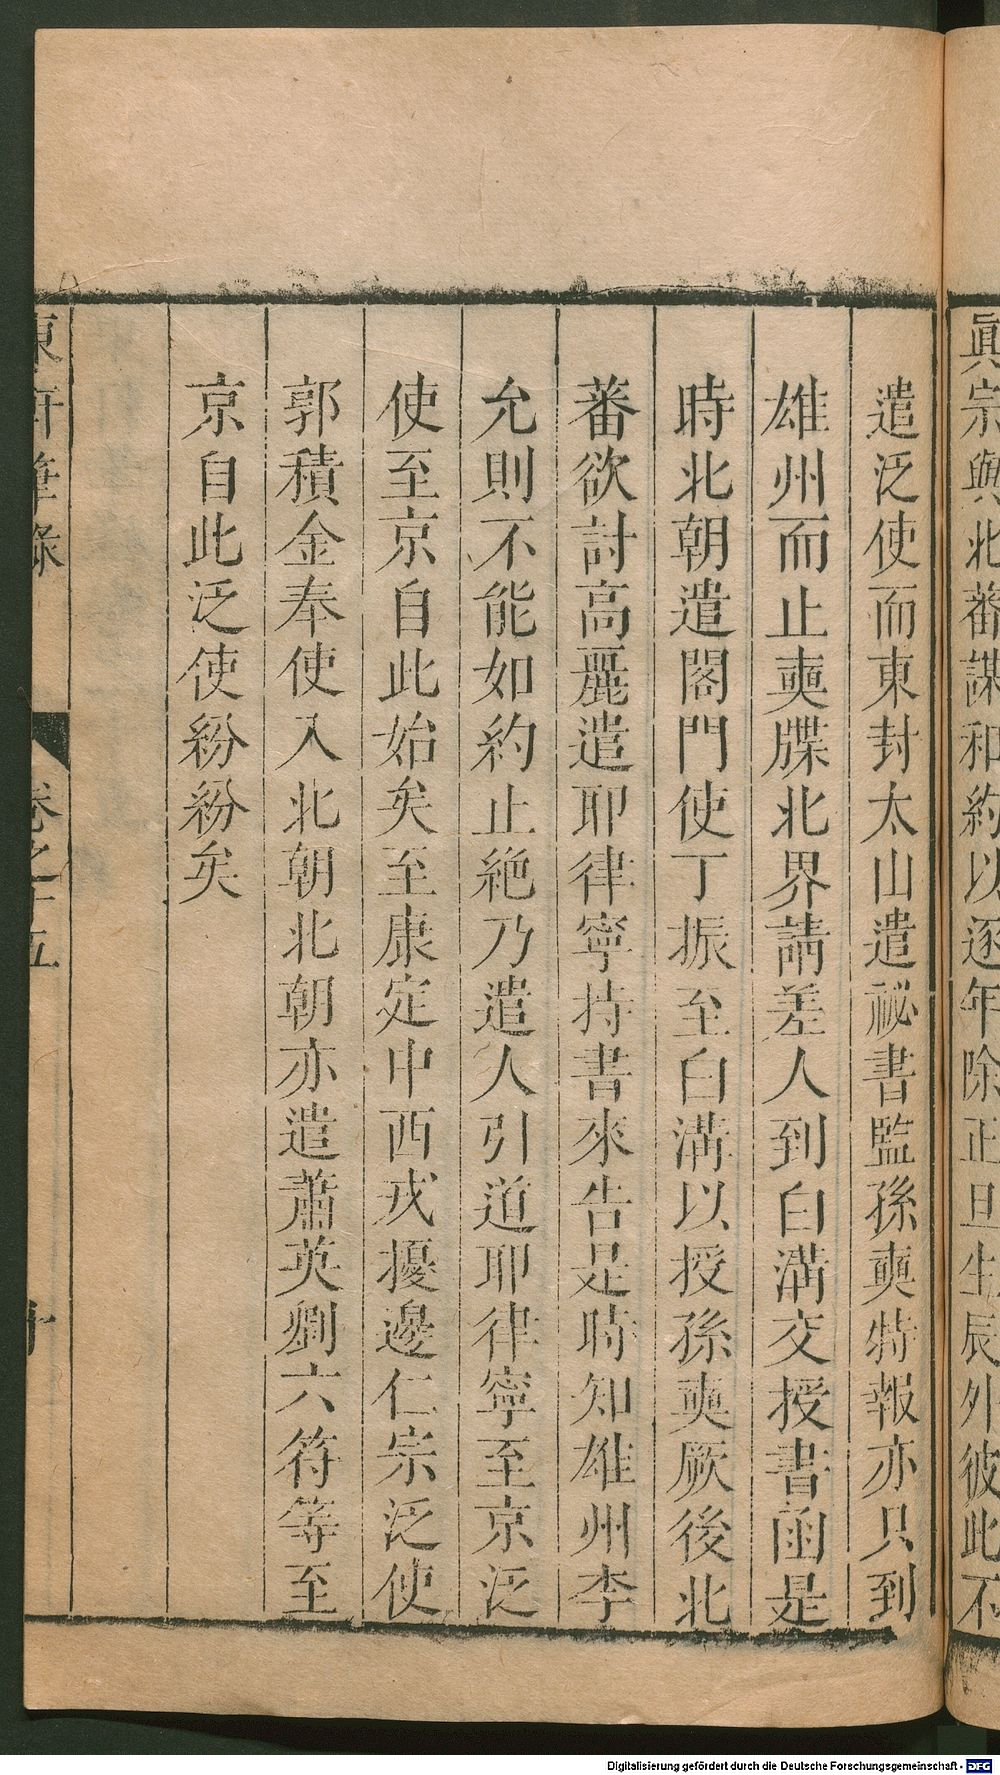 眞宗與北蕃謀和約以逐年除正旦生辰外彼此不
遣泛使而東封太山遣祕書監孫奭特報亦只到
雄州而止奭牒北界請差人到白溝交授書函是
時北朝遣閤門使丁振至白溝以授孫奭厥後北
蕃欲討高麗遣耶律寧持書來告是時知雄州李
允則不能如約止絶乃遣人引道耶律寧至京泛
使至京自此始矣至康定中西戎擾邊仁宗泛使
郭積金奉使入北朝北朝亦遣蕭英劉六符等至
京自此泛使紛紛矣
東軒筆錄 卷之十五
Digitalisierung gefördert durch die Deutsche Forschungsgemeinschaft - DFG